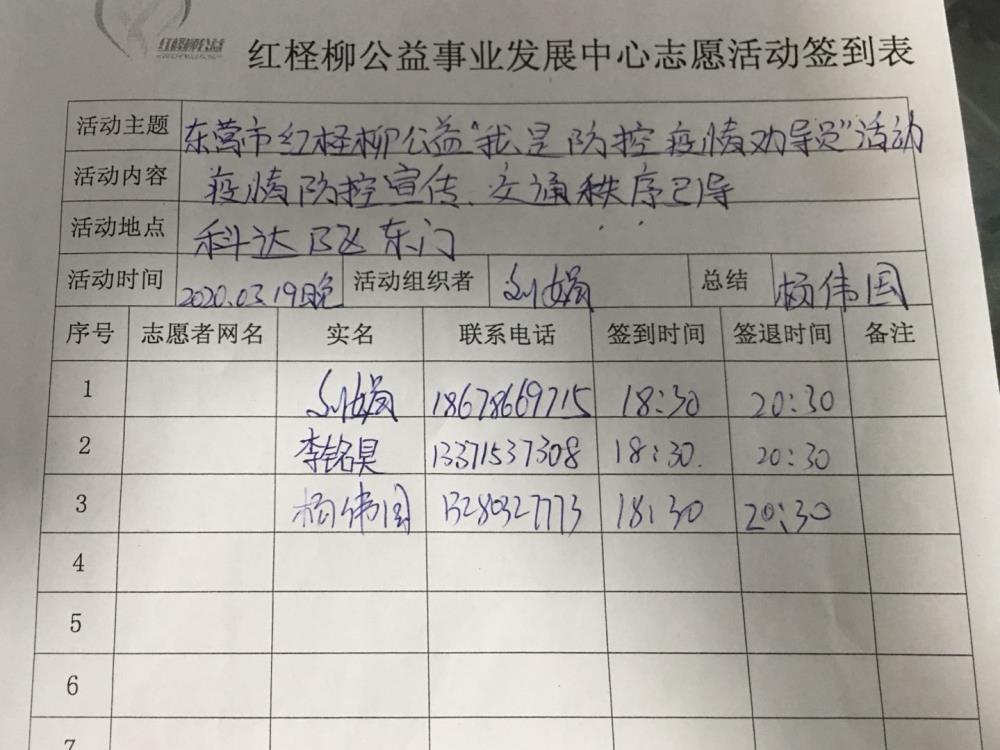 红柽柳公益
红柽柳公益事业发展中心志愿活动签到表
活动主题 东营市红柽柳公益“我是防控疫情劝导员”活动
活动内容 疫情防控宣传、交通秩序引导
活动地点 科达B区东门
活动时间 2020.03.19晚 活动组织者 刘娟 总结 杨伟国
序号 志愿者网名 实名 联系电话 签到时间 签退时间 备注
1 刘娟 18678669715 18:30 20:30
2 李铭昊 13371537308 18:30. 20:30
3 杨伟国 13280327773 18:30 20:30
4
5
6
7